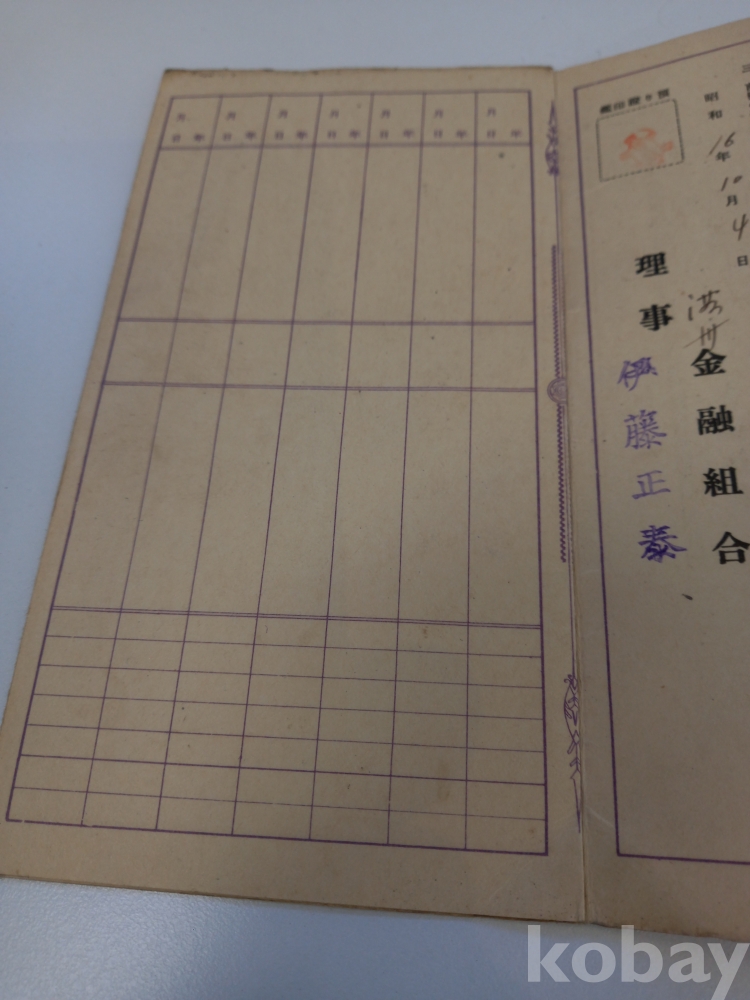 昭和16年10月4日
金融組合
理事 伊藤正泰
年月日
年月日
年月日
年月日
年月日
年月日
年月日
kobay